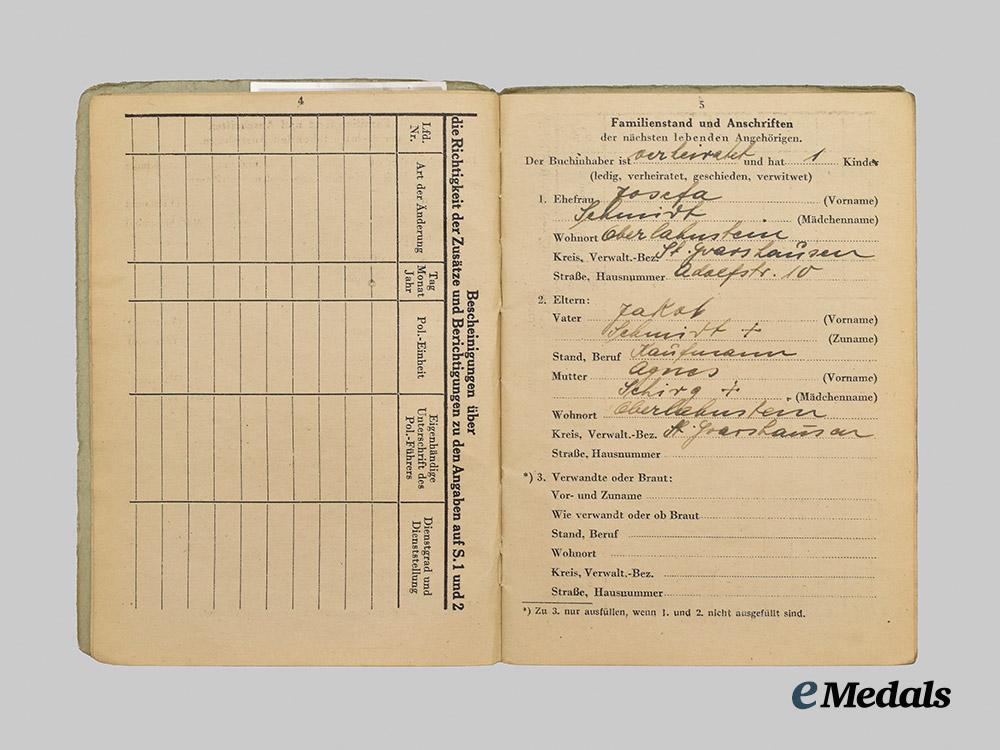 4
Bescheinigungen über
die Richtigkeit der Zusätze und Berichtigungen zu den Angaben auf S. 1 und 2
Lfd. Nr.
Art der Änderung
Tag Monat Jahr
Pol.-Einheit
Eigenhändige Unterschrift des Pol.-Führers
Dienstgrad und Dienststellung
5
Familienstand und Anschriften
der nächsten lebenden Angehörigen.
Der Buchinhaber ist verheiratet und hat 1 Kinder
(ledig, verheiratet, geschieden, verwitwet)
1. Ehefrau Josefa (Vorname)
Schmidt (Mädchenname)
Wohnort Oberlahnstein
Kreis, Verwalt.-Bez. St. Goarshausen
Straße, Hausnummer Adolfstr. 10
2. Eltern:
Vater Jakob (Vorname)
Schmidt + (Zuname)
Stand, Beruf Kaufmann
Mutter Agnes (Vorname)
+ (Mädchenname)
Wohnort Oberlahnstein
Kreis, Verwalt.-Bez. St. Goarshausen
Straße, Hausnummer
*) 3. Verwandte oder Braut:
Vor- und Zuname
Wie verwandt oder ob Braut
Stand, Beruf
Wohnort
Kreis, Verwalt.-Bez.
Straße, Hausnummer
*) Zu 3. nur ausfüllen, wenn 1. und 2. nicht ausgefüllt sind.
eMedals